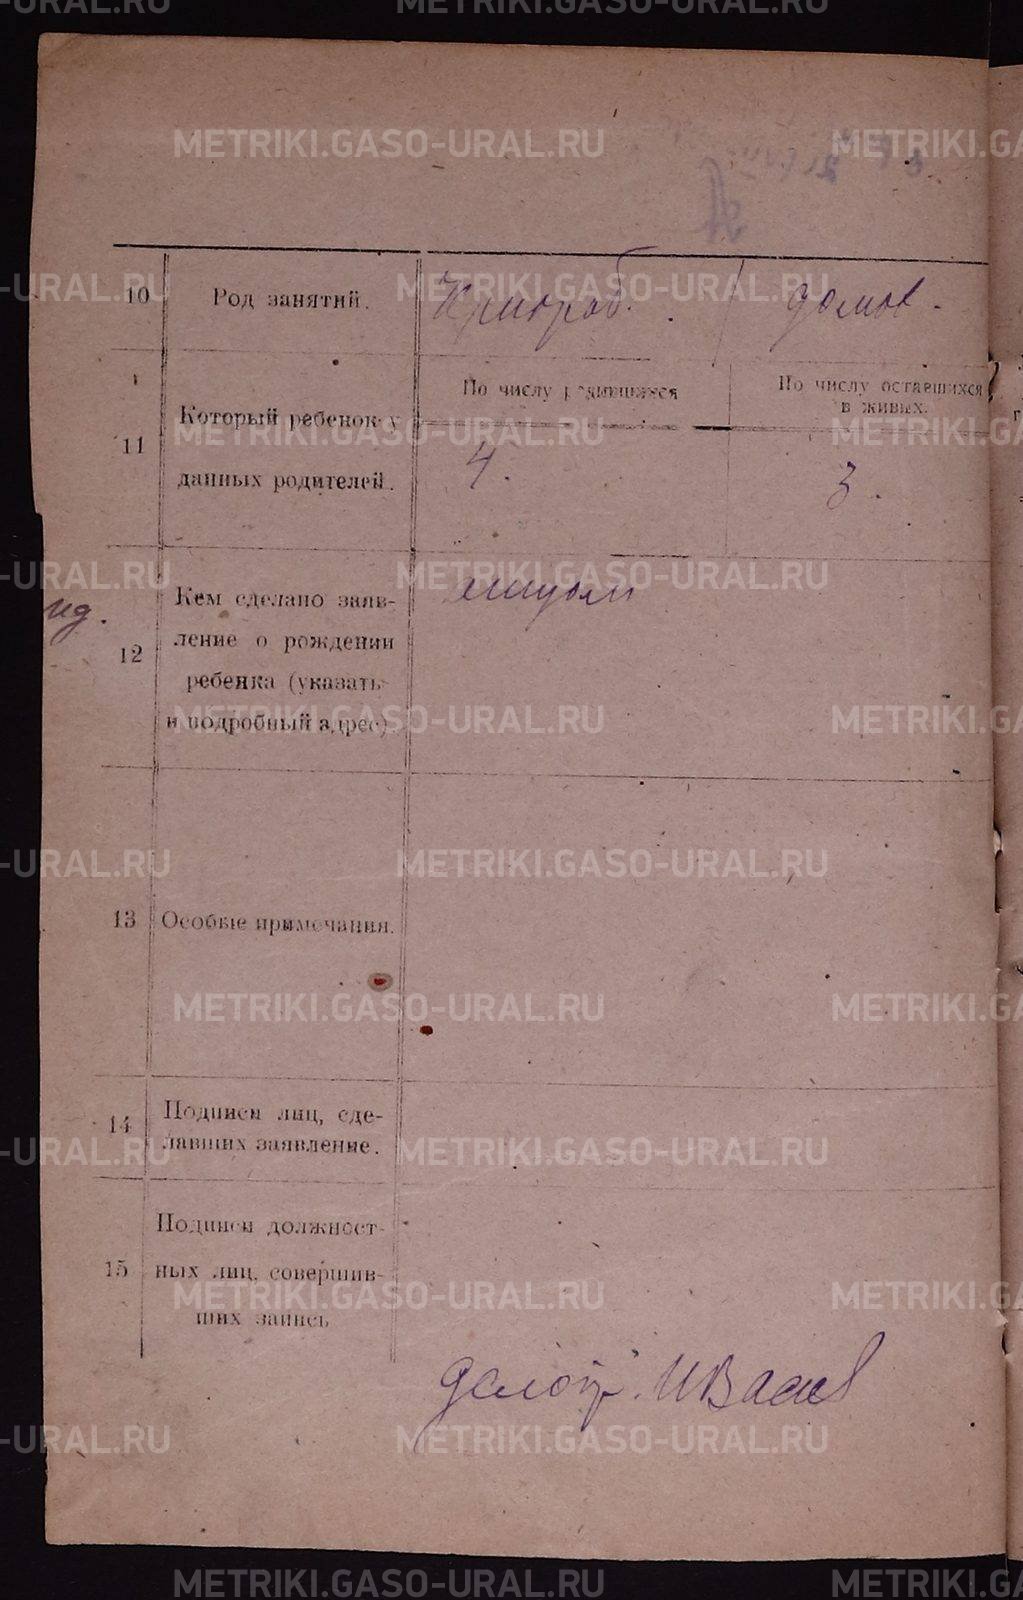 10 Род занятий. домов.
11 Который ребенок у данных родителей.
По числу родившихся
По числу оставшихся
в живых.
4.
3.
12 Кем сделано заяв-
ление о рождении
ребенка (указать
и подробный адрес)
13 Особые примечания.
14 Подписи лиц, сде-
лавших заявление.
15 Подписи должност-
ных лиц, совершив-
ших запись
METRIKI.GASO-URAL.RU